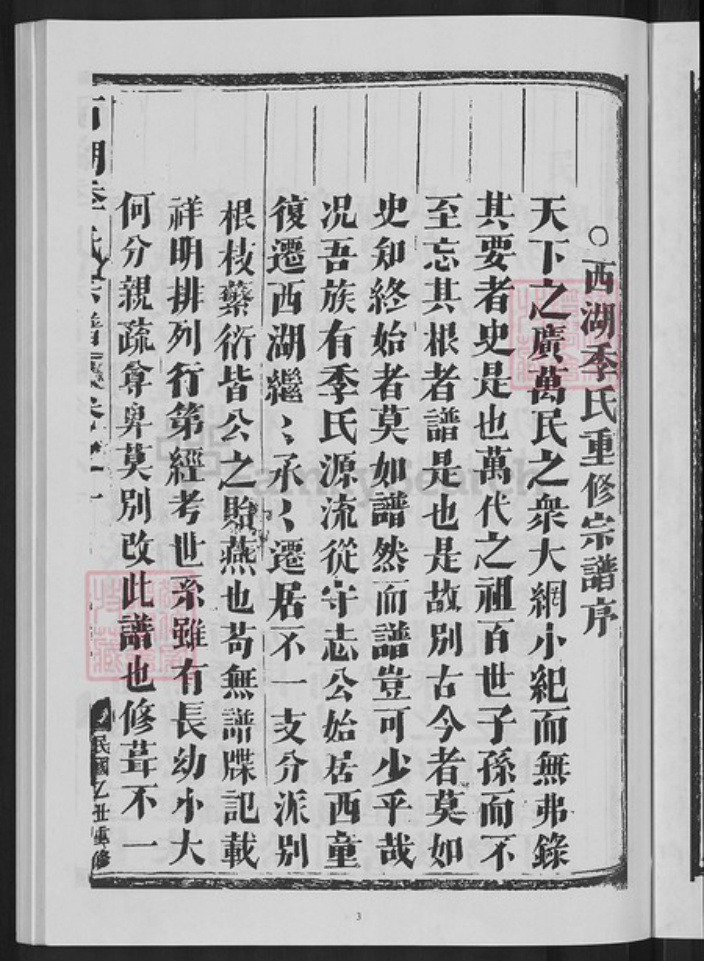 ○西湖季氏重修宗譜序
天下之廣萬民之衆大網小紀而無弗錄
其要者史是也萬代之祖百世子孫而不
至忘其根者譜是也是故別古今者莫如
史知終始者莫如譜然而譜豈可少乎哉
况吾族有季氏源流從守志公始居西童
復遷西湖繼〻承〻遷居不一支分派別
根枝蘩衍皆公之貽燕也苟無譜牒記載
祥明排列行第經考世系雖有長幼小大
何分親疏尊卑莫別改此譜也修葺不一
西湖季氏宗譜 卷之一
民國乙丑重修
FamilySearch
3